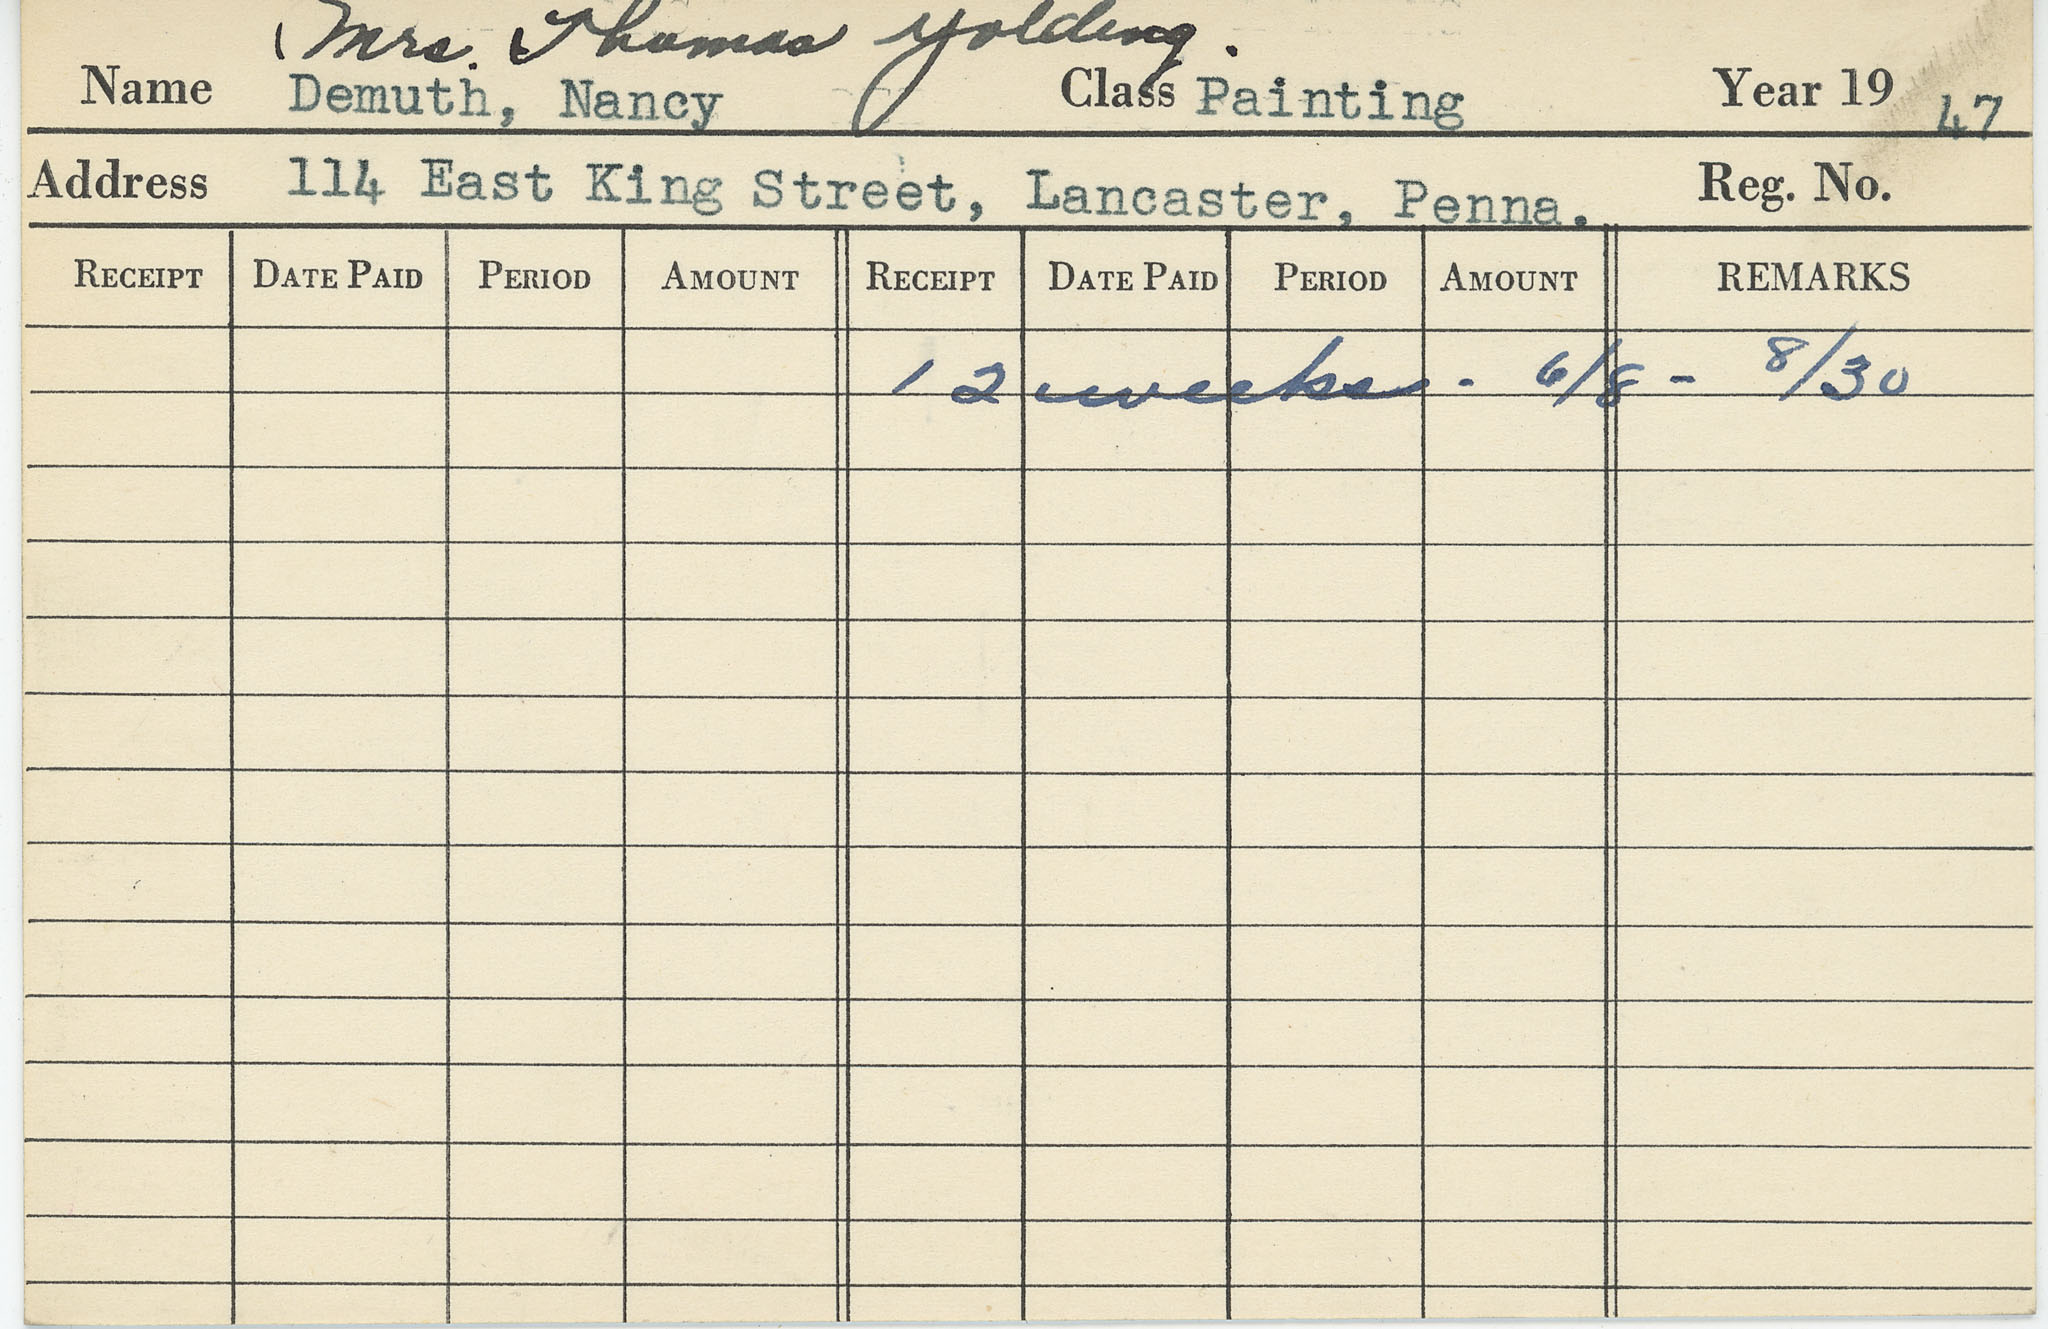 (Mrs. Thomas Yolding.
Name Demuth, Nancy Class Painting Year 19 47
Address 114 East King Street, Lancaster, Penna. Reg. No.
RECEIPT DATE PAID PERIOD AMOUNT RECEIPT DATE PAID PERIOD AMOUNT REMARKS
12 weeks - 6/8 - 8/30